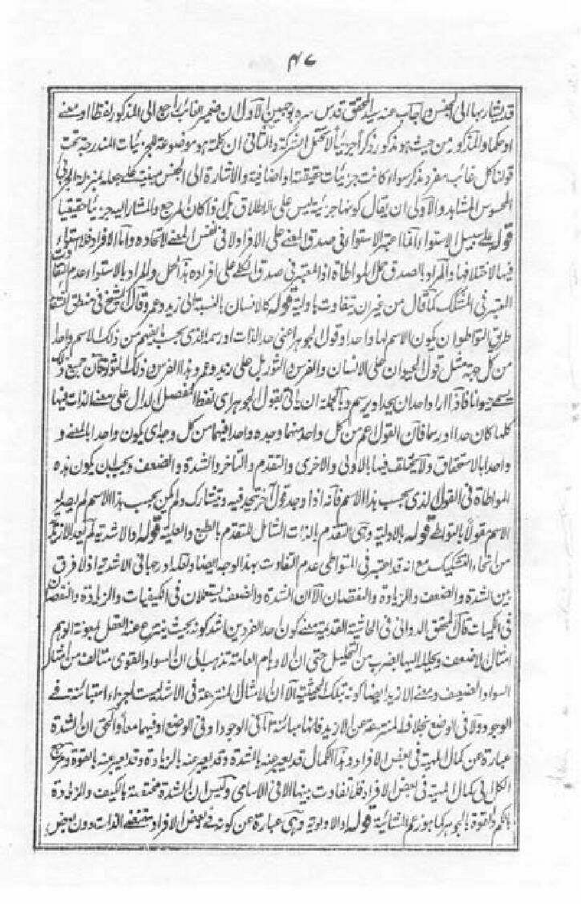 ۴۷
قد یشار بہا الی الجنس واجاب عنہ سید المحقق قدس سرہ بوجہین الاول ان ضمیر الغائب راجع الی المذکور لفظا او معنے
او حکما والمذکور من حیث ہو مذکور ذکرا جزئیا لا یحتمل الشرکة والثانی ان کلمة ہو موضوعة للجزئیات المندرجة تحت
قولنا کل غائب مفرد مذکر سواء کانت جزئیات حقیقیة او اضافیة والاشارة الی الجنس مبنیة علے جعلہ بمنزلة الجزئی
المحسوس المشاہد والاولی ان یقال کونہا جزئیة لیس علی الاطلاق بل اذا کان المرجع والمشار الیہ جزئیا حقیقیا
قولہ علے سبیل الاستواء انما اعتبر الاستواء فی صدق المعنے علی الافراد لا فی نفس المعنے لاتحادہ واما الافراد فلا استواء
فیہا لاختلافہا والمراد بالصدق حمل المواطاة اذ المعتبر فی صدق الکلی علی افرادہ ہذا الحمل والمراد بالاستواء عدم التفاوت
المعتبر فی المشکک کما قال من غیر ان یتفاوت باولیة قولہ کالانسان بالنسبة الی زید وعمرو قال الشیخ فی منطق الشفا
طریق التواطو ان یکون الاسم لہا واحدا وقول الجوہر اعنی حد الذات او رسمہ الذی بحسب ما یفہم من ذلک الاسم واحدا
من کل جہة مثل قولنا الحیوان علی الانسان والفرس والثور بل علی زید وعمرو وہذا الفرس وذلک الثور فان جمیع ذلک
یسمے حیوانا فاذا اراد احد ان یحد او یرسم وبالجملة ان یاتی بقول الجوہر ای اللفظ المفصل الدال علی معنے الذات فیہا
کلہا کان حدا او رسما فان القول اعم من کل واحد منہما وجدہ واحدا فیہما من کل وجہ ای یکون واحدا بالمعنے و
واحدا بالاستحقاق ولا یختلف فیہا بالاولی والاخری والتقدم والتاخر والشدة والضعف ویجب ان یکون ہذہ
المواطاة فی القول الذی بحسب ہذا الاسم فانہ اذا وجد قول آخر یتحد فیہ ویتشارک ولم یکن بحسب ہذا الاسم لم یصر لہ
الاسم مقولا بالتواطے قولہ باولیة وہی التقدم بالذات الشامل للتقدم بالطبع والعلیة قولہ او اشدیة لم یعد الازیدیة
من انحاء التشکیک مع انہ قد اعتبر فی المتواطی عدم التفاوت بہذا الوجہ ایضا ولعلہ ادرجہا فی الاشدیة اذ لا فرق
بین الشدة والضعف والزیادة والنقصان الا ان الشدة والضعف یستعملان فی الکیفیات والزیادة والنقصان
فی الکمیات قال المحقق الدوانی فی الحاشیة القدیمة معنے کون احد الفردین اشد کونہ بحیث ینتزع عنہ العقل بمعونة الوہم
امثال الاضعف ویحللہ الیہا بضرب من التحلیل حتی ان الاوہام العامیة تذہب الی ان السواد القوی متالف من امثال
السواد الضعیف ومعنے الازید ایضا کونہ بتلک الحیثیة الا ان الامثال المنتزعة فی الاشد لیست اجزاء متبائنة فے
الوجود ولا فی الوضع بخلاف المنتزعة عن الازید فانہا متبائنة اما فی الوجود او فی الوضع او فیہما معا والحق ان الشدة
عبارة عن کمال المہیة فی بعض الافراد وہذا الکمال قد یعبر عنہ بالشدة وقد یعبر عنہ بالزیادة وقد یعبر عنہ بالقوة ومرجع
الکل الی کمال المہیة فی بعض الافراد فلا تفاوت بینہا الا فی الاسامی ولیس ان الشدة مختصة بالکیف والزیادة
بالکم والقوة بالجوہر کما ہو زعم المشائیة قولہ او الاولویة وہی عبارة عن کونہ فے بعض الافراد مقتضے الذات دون بعض